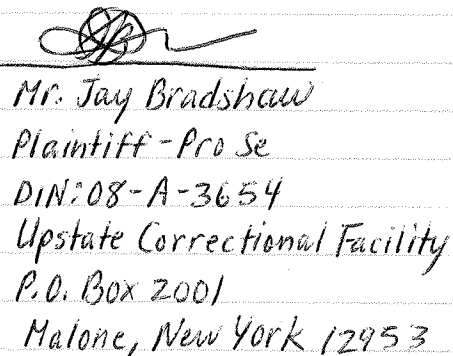 Mr. Jay Bradshaw
Plaintiff-Pro Se
DIN:08-A-3654
Upstate Correctional Facility
P.O. Box 2001
Malone, New York 12953